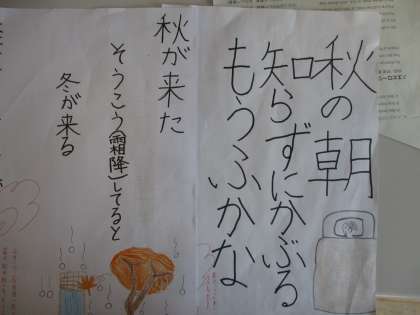 秋の朝
知らずにかぶる
もうふかな
秋が来た
そうこう(霜降)してると
冬が来る